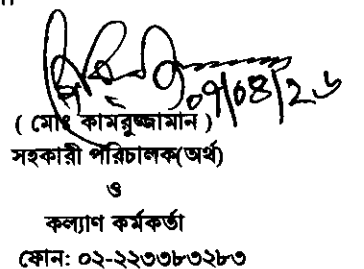 ০৭/০৪/২৬
( মোঃ কামরুজ্জামান )
সহকারী পরিচালক(অর্থ)
ও
কল্যাণ কর্মকর্তা
ফোন: ০২-২২৩৩৮৩২৮৩